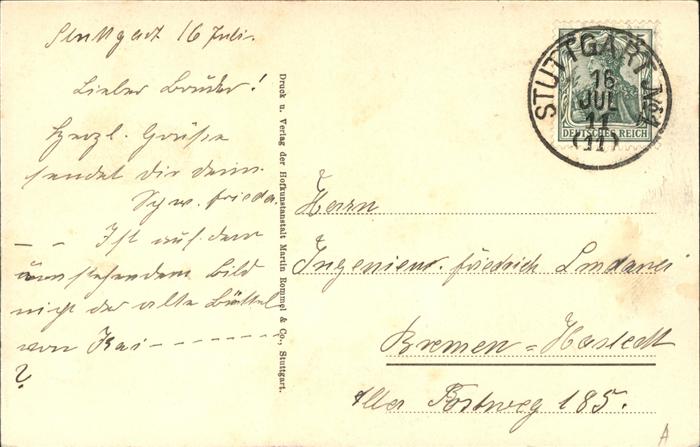 Stuttgart 16 Juli.
Lieber Bruder!
Herzl. Grüsse
sendet dir deine
Schw. Frieda.
– – Ist auf dem
umstehendem Bild
nicht der alte Büttel
von Kai – – – – – – –
?
Druck u. Verlag der Hofkunstanstalt Martin Rommel & Co., Stuttgart.
5
DEUTSCHES REICH
STUTTGART No 1
16
JUL
11
(11)
Herrn
Ingenieur. Friedrich
Bremen = Hastedt
Alter Postweg 185.
A